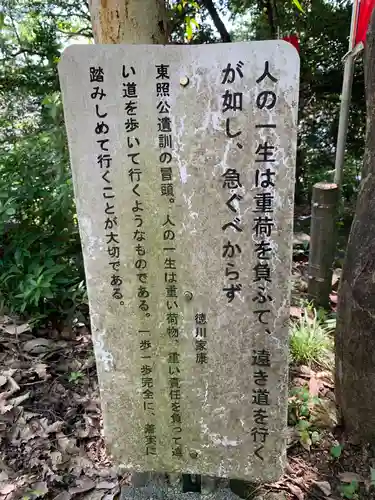 人の一生は重荷を負ふて、遠き道を行く
が如し、急ぐべからず
徳川家康
東照公遺訓の冒頭。人の一生は重い荷物、重い責任を負って遠
い道を歩いて行くようなものである。一歩一歩完全に、着実に
踏みしめて行くことが大切である。